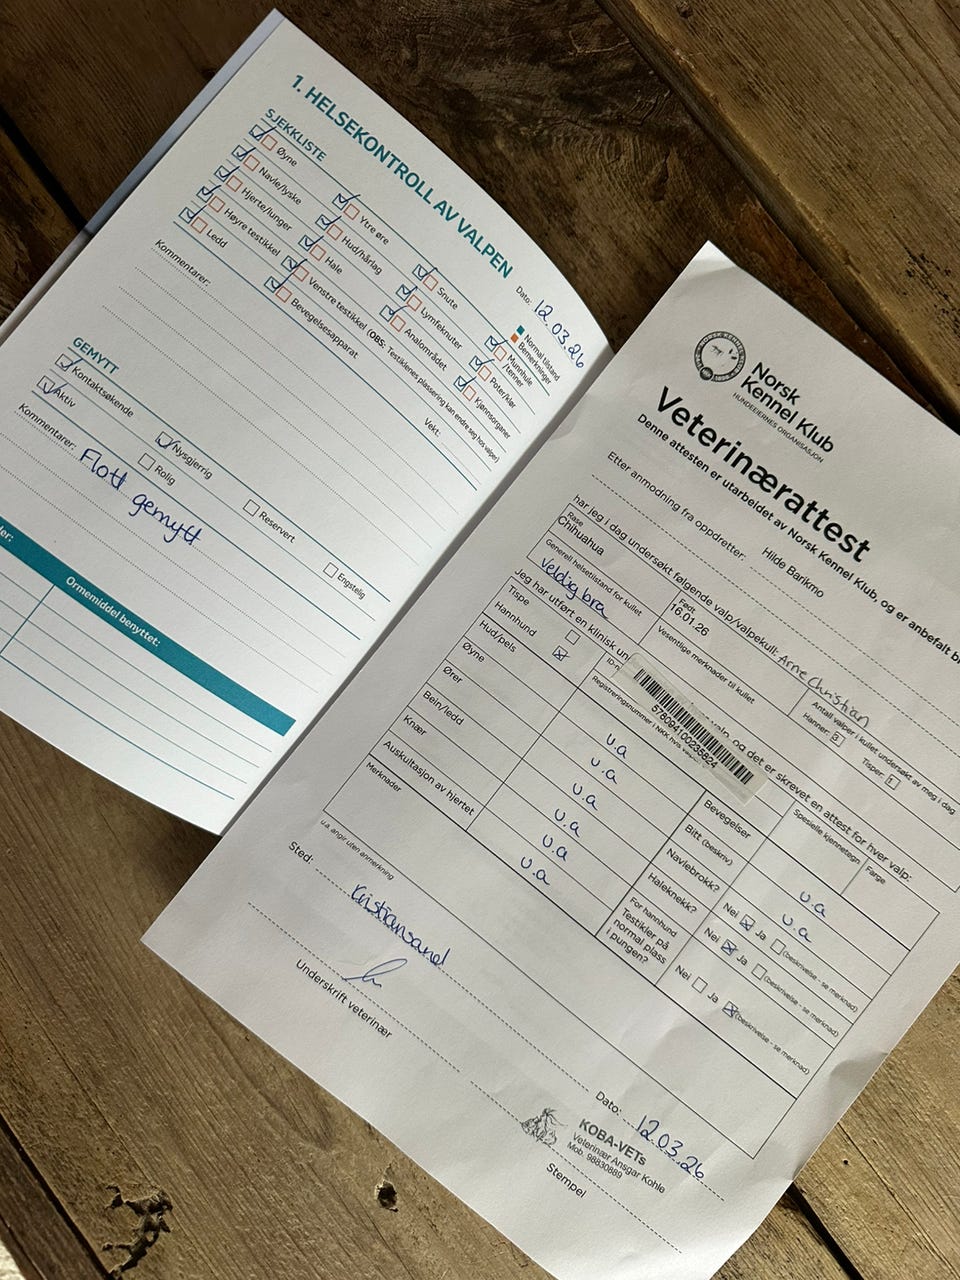 1. HELSEKONTROLL AV VALPEN
Dato: 12.03.26
SJEKKLISTE
Normal tilstand
Bemerkninger
Øyne
Ytre øre
Snute
Munnhule /tenner
Navle/lyske
Hud/hårlag
Lymfeknuter
Poter/klør
Hjerte/lunger
Hale
Analområdet
Kjønnsorganer
Høyre testikkel
Venstre testikkel (OBS: Testiklenes plassering kan endre seg hos valper)
Ledd
Bevegelsesapparat
Vekt:
Kommentarer:
GEMYTT
Kontaktsøkende
Nysgjerrig
Reservert
Engstelig
Aktiv
Rolig
Kommentarer: Flott gemytt
Ormemiddel benyttet:
Norsk
Kennel Klub
HUNDEEIERNES ORGANISASJON
Veterinærattest
Denne attesten er utarbeidet av Norsk Kennel Klub, og er anbefalt
Etter anmodning fra oppdretter: Hilde Barikmo
har jeg i dag undersøkt følgende valp/valpekull: Arne Christian
Rase
Chihuahua
Født
16.01.26
Antall valper i kullet undersøkt av meg i dag
Hanner: 3 Tisper: 1
Generell helsetilstand for kullet
Veldig bra
Vesentlige merknader til kullet
Jeg har utført en klinisk valp, og det er skrevet en attest for hver valp:
Tispe
Hannhund
578094100235824
Registreringsnummer i NKK hvis
Spesielle kjennetegn
Farge
Hud/pels u.a
Øyne u.a
Ører u.a
Bein/ledd u.a
Knær u.a
Auskultasjon av hjertet u.a
Bevegelser u.a
Bitt (beskriv) u.a
Navlebrokk? Nei Ja (beskrivelse - se merknad)
Haleknekk? Nei Ja (beskrivelse - se merknad)
For hannhund
Testikler på
normal plass
i pungen? Nei Ja (beskrivelse - se merknad)
Merknader
u.a. angir uten anmerkning
Sted: Kristiansand
Dato: 12.03.26
Underskrift veterinær
KOBA-VETs
Veterinær Ansgar Kohle
Mob. 98830889
Stempel